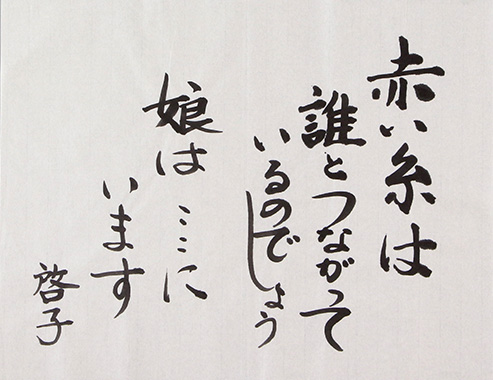 赤い糸は
誰とつながって
いるのでしょう
娘はここに
います
啓子